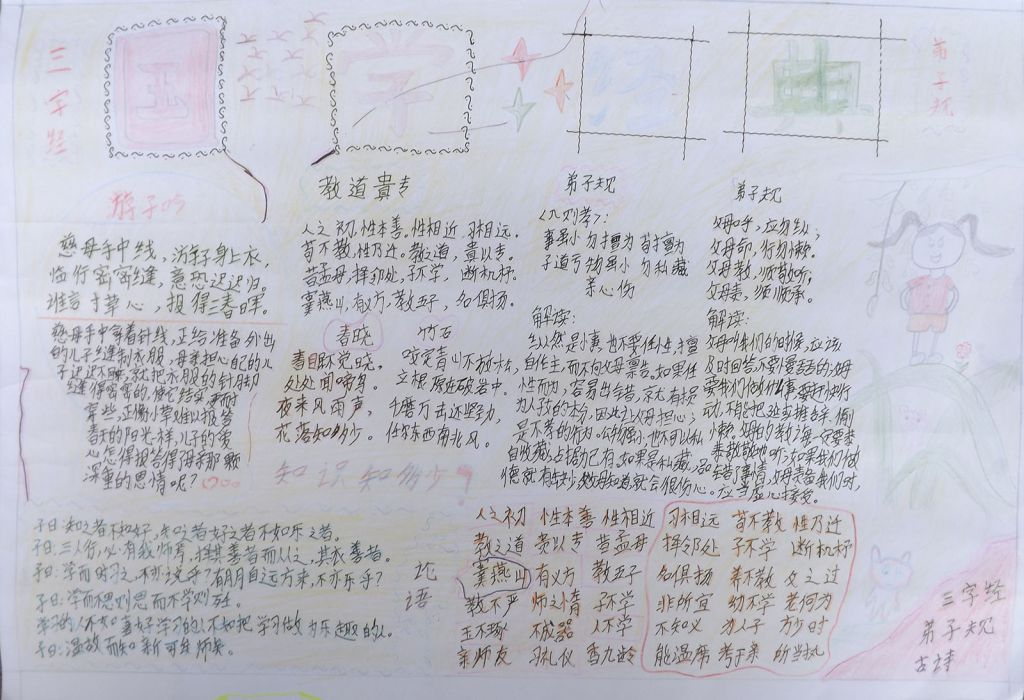 三字经
国
学
经
典
弟子规
游子吟
慈母手中线，游子身上衣，
临行密密缝，意恐迟迟归。
谁言寸草心，报得三春晖。
慈母手中拿着针线，正给准备外出
的儿子缝制衣服，母亲担心自己的儿
子迟迟不回，就把衣服的针脚
缝得密密的，使它结实耐
穿些，正像小草难以报答
春天的阳光一样，儿子的爱
心怎得报答得了母亲那颗
深重的恩情呢？
教道貴专
人之初，性本善。性相近，习相远。
苟不教，性乃迁。教之道，贵以专。
昔孟母，择邻处，子不学，断机杼。
窦燕山，有义方，教五子，名俱扬。
春晓
春眠不觉晓，
处处闻啼鸟。
夜来风雨声，
花落知多少。
竹石
咬定青山不放松，
立根原在破岩中。
千磨万击还坚劲，
任尔东西南北风。
知识知多少？
弟子规
《入则孝》：
事虽小 勿擅为 苟擅为
子道亏 物虽小 勿私藏
亲心伤
解读：
纵然是小事，也不要任性，擅
自作主，而不向父母禀告。如果任
性而为，容易出错，就有损
为人子的本分，因此让父母担心；
是不孝的行为。公物虽小，也不可以私
自收藏，占据己有。如果是私藏，品
德就有缺少，父母知道就会很伤心。
弟子规
父母呼，应勿缓；
父母命，行勿懒。
父母教，须敬听；
父母责，须顺承。
解读：
父母叫我们的时候，应该
及时回答不要慢吞吞的，父母
要我们做什么事，要赶快行
动，不能把延或推辞、偷
懒。父母的教诲一定要恭
恭敬敬地听；如果我们做
错了事情，父母责备我们时，
应当虚心接受。
子曰：知之者不如好，知之者好之者不如乐之者。
子曰：三人行，必有我师焉，择其善者而从之，其衣善者。
子曰：学而时习之，不亦说乎？有朋自远方来，不亦乐乎？
子曰：学而不思则思而不学则殆。
学习的人不如喜好学习的人不如把学习做为乐趣的人。
子曰：温故而知新可以师矣。
论
语
人之初 性本善 性相近 习相远 苟不教 性乃迁
教之道 贵以专 昔孟母 择邻处 子不学 断机杼
窦燕山 有义方 教五子 名俱扬 养不教 父之过
教不严 师之惰 子不学 非所宜 幼不学 老何为
玉不琢 不成器 人不学 不知义 为人子 方少时
亲师友 习礼仪 香九龄 能温席 孝于亲 所当执
三字经
弟子规
古诗